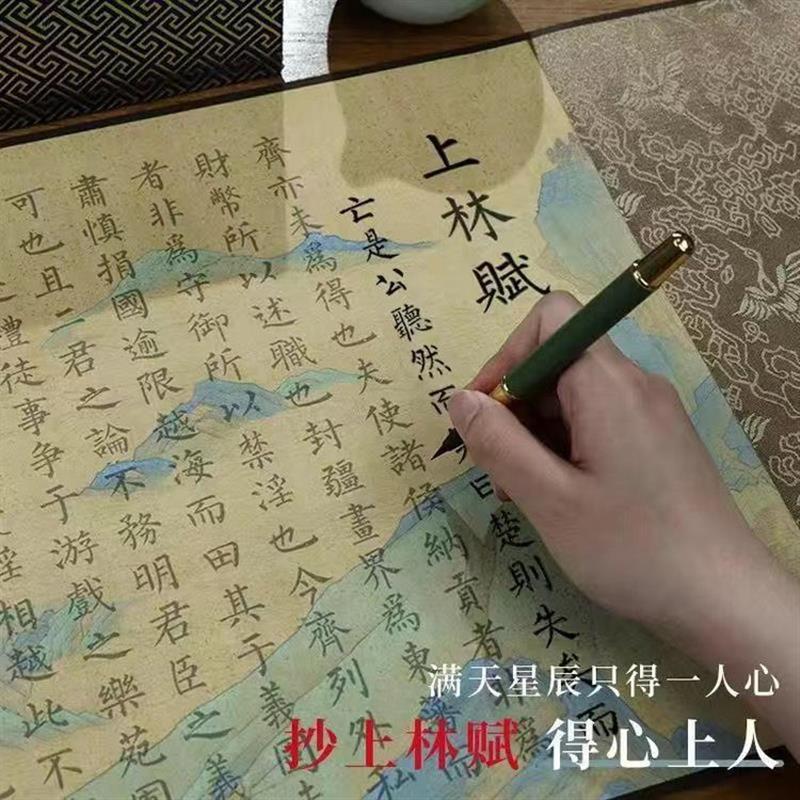 上林賦
亡是公聽然而笑曰楚則失矣而
齊亦未為得也夫使諸侯納貢者非
財幣所以述職也封疆畫界為東藩而
者非為守御所以禁淫也今齊列外私
肅慎捐國逾限越海而田其于義固
可也且二君之論不務明君臣之義
禮徒事爭于游戲之樂苑囿
淫相越此不
满天星辰只得一人心
抄上林赋 得心上人